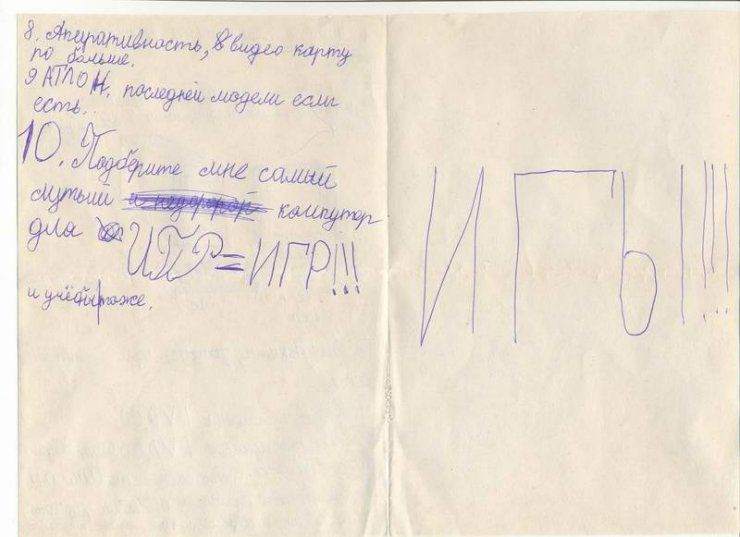 8. Аперативность, в видео карту
по больше.
9 АТЛОН. последней модели если
есть..
10. Подберите мне самый
смутый компутер
для ИГР=ИГР!!!
и учёбы тоже.
ИГЫ!!!